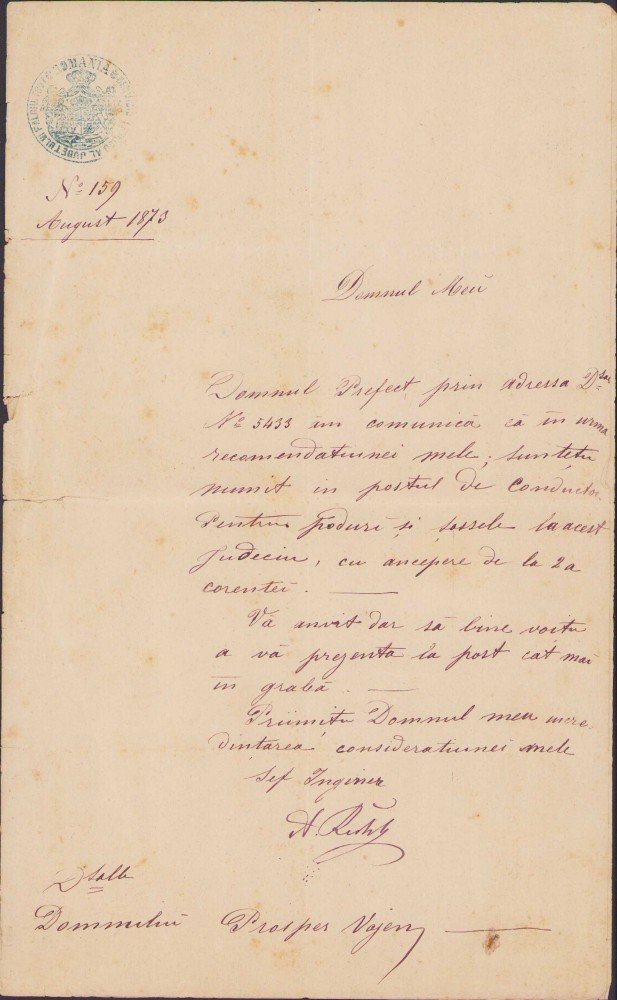 ROMANIA
AL JUDETULUI FALCIU
No 159
August 1873
Domnul Meu
Domnul Prefect prin adressa D-sale
No 5433 im comunică că în urma
recomendatiunei mele, suntetu
numit in postul de conductor
Pentru poduri si sossele la acest
Judeciu, cu ancepere de la 2a
corentei.
Vă anvit dar să bine voitu
a vă prezenta la post cat mai
în grabă.
Priimitu Domnul meu incre-
dintarea consideratiunei mele
Sef Inginer
D salle
Domnului Prosper Vajen